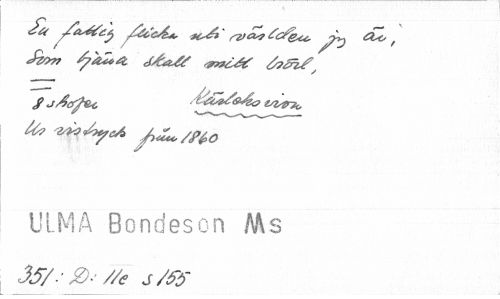 En fattig flicka uti världen jag är,
Som tjäna skall mitt bröd,
8 strofer Kärleksvisa
Ur vistryck från 1860
ULMA Bondeson Ms
351: D: 11e s 155